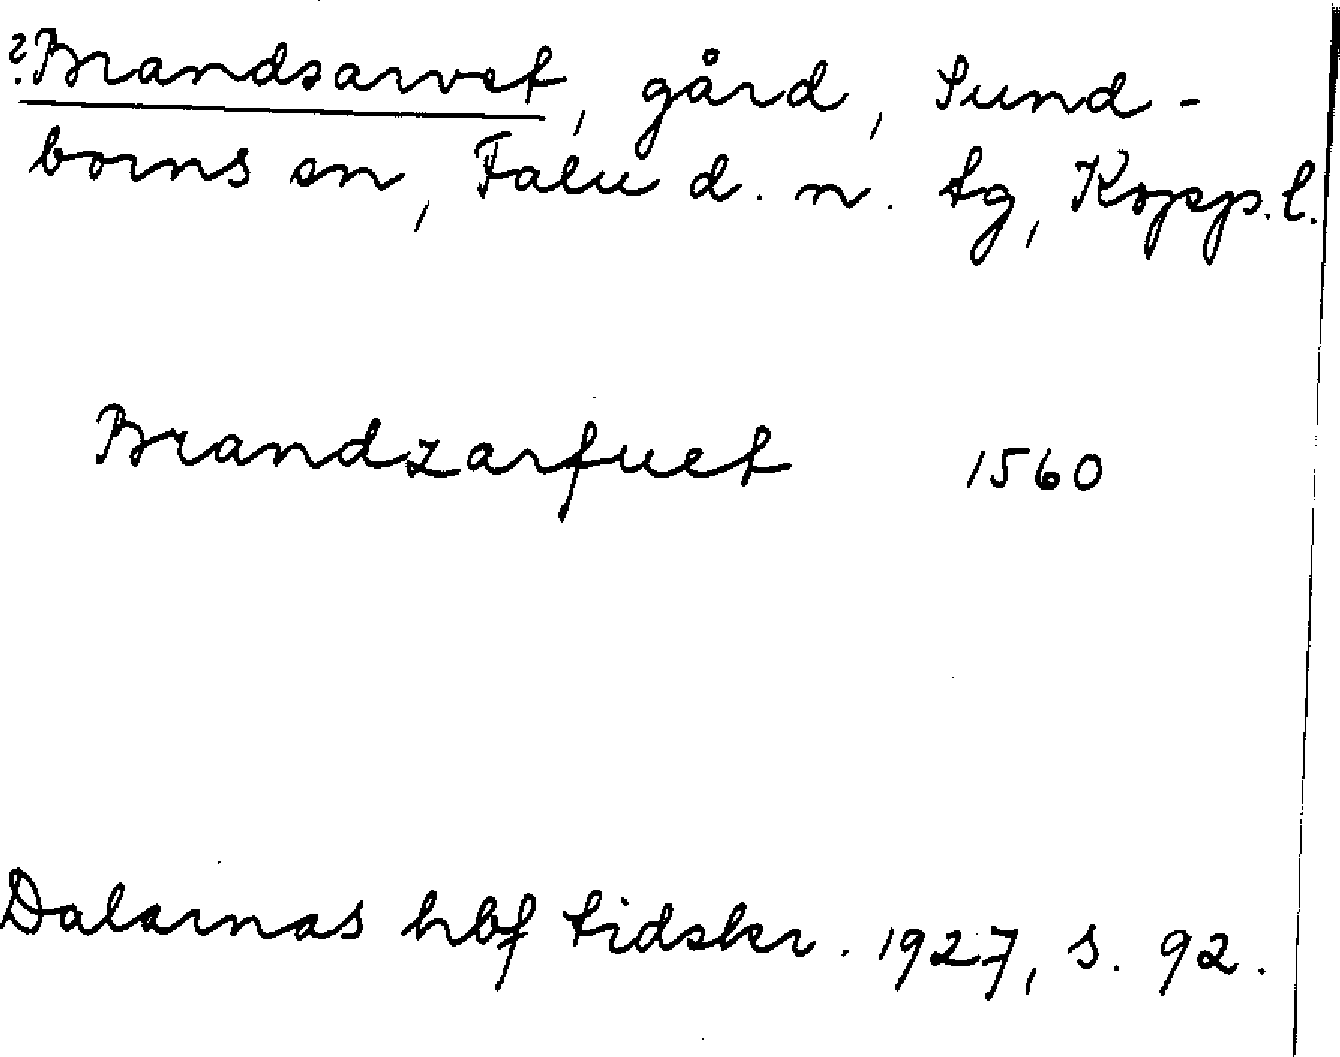 ?Brandsarvet, gård, Sund-
borns sn, Falu d. n. tg, Kopp. l.
Brandzarfuet 1560
Dalarnas hbf tidskr. 1927, s. 92.